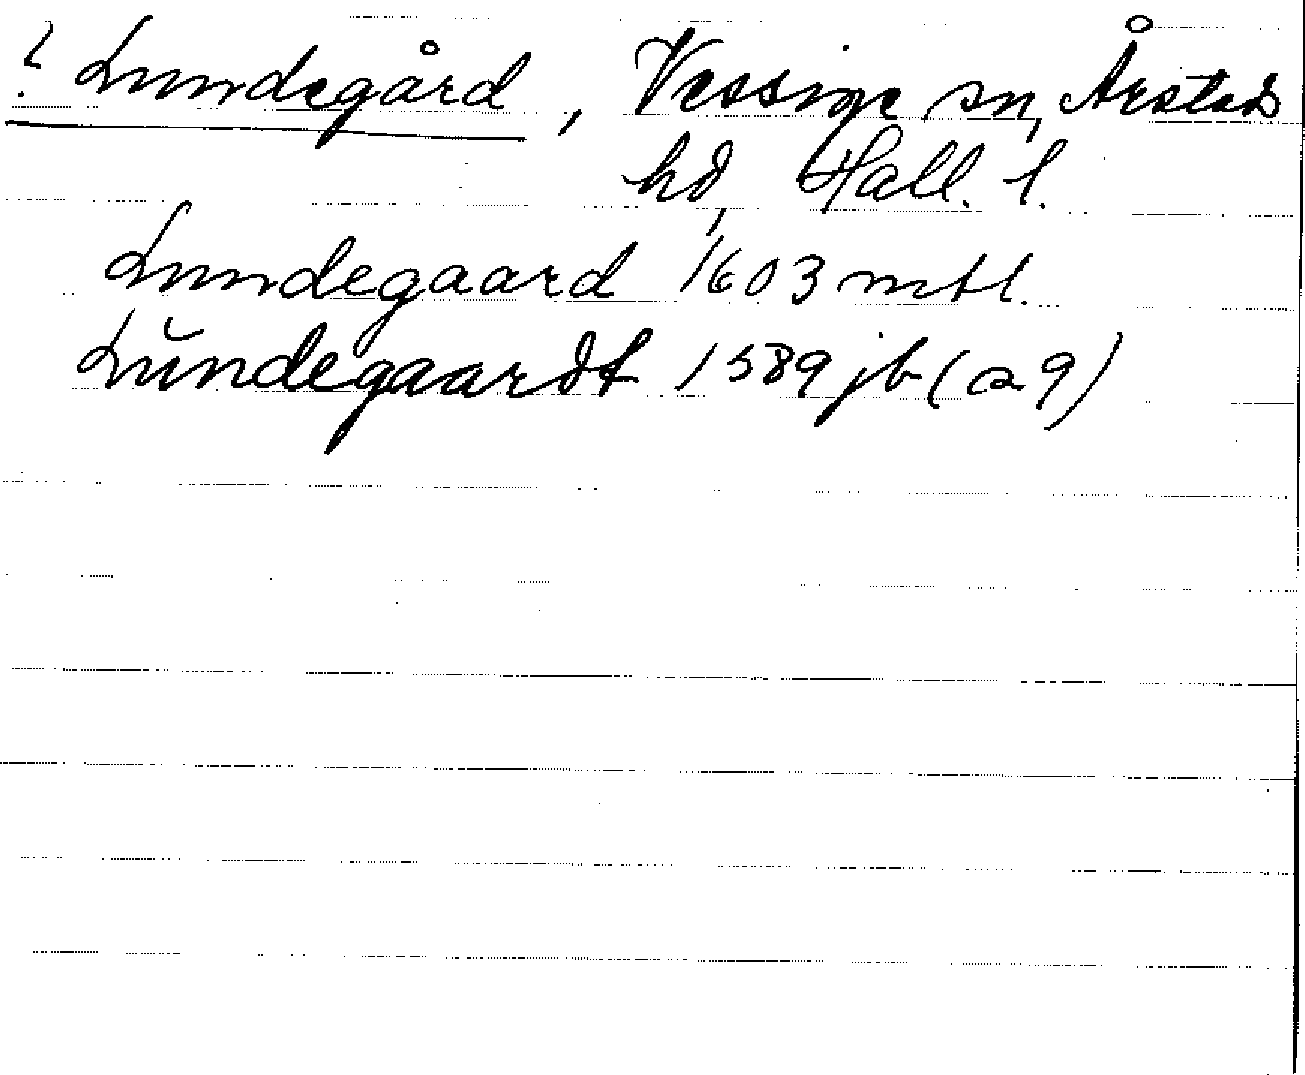 ? Lundegård, Vessige sn, Årstads
hd, Hall. l.
Lundegaard 1603 mtl.
Lŭndegaardt 1589 jb (a 9)